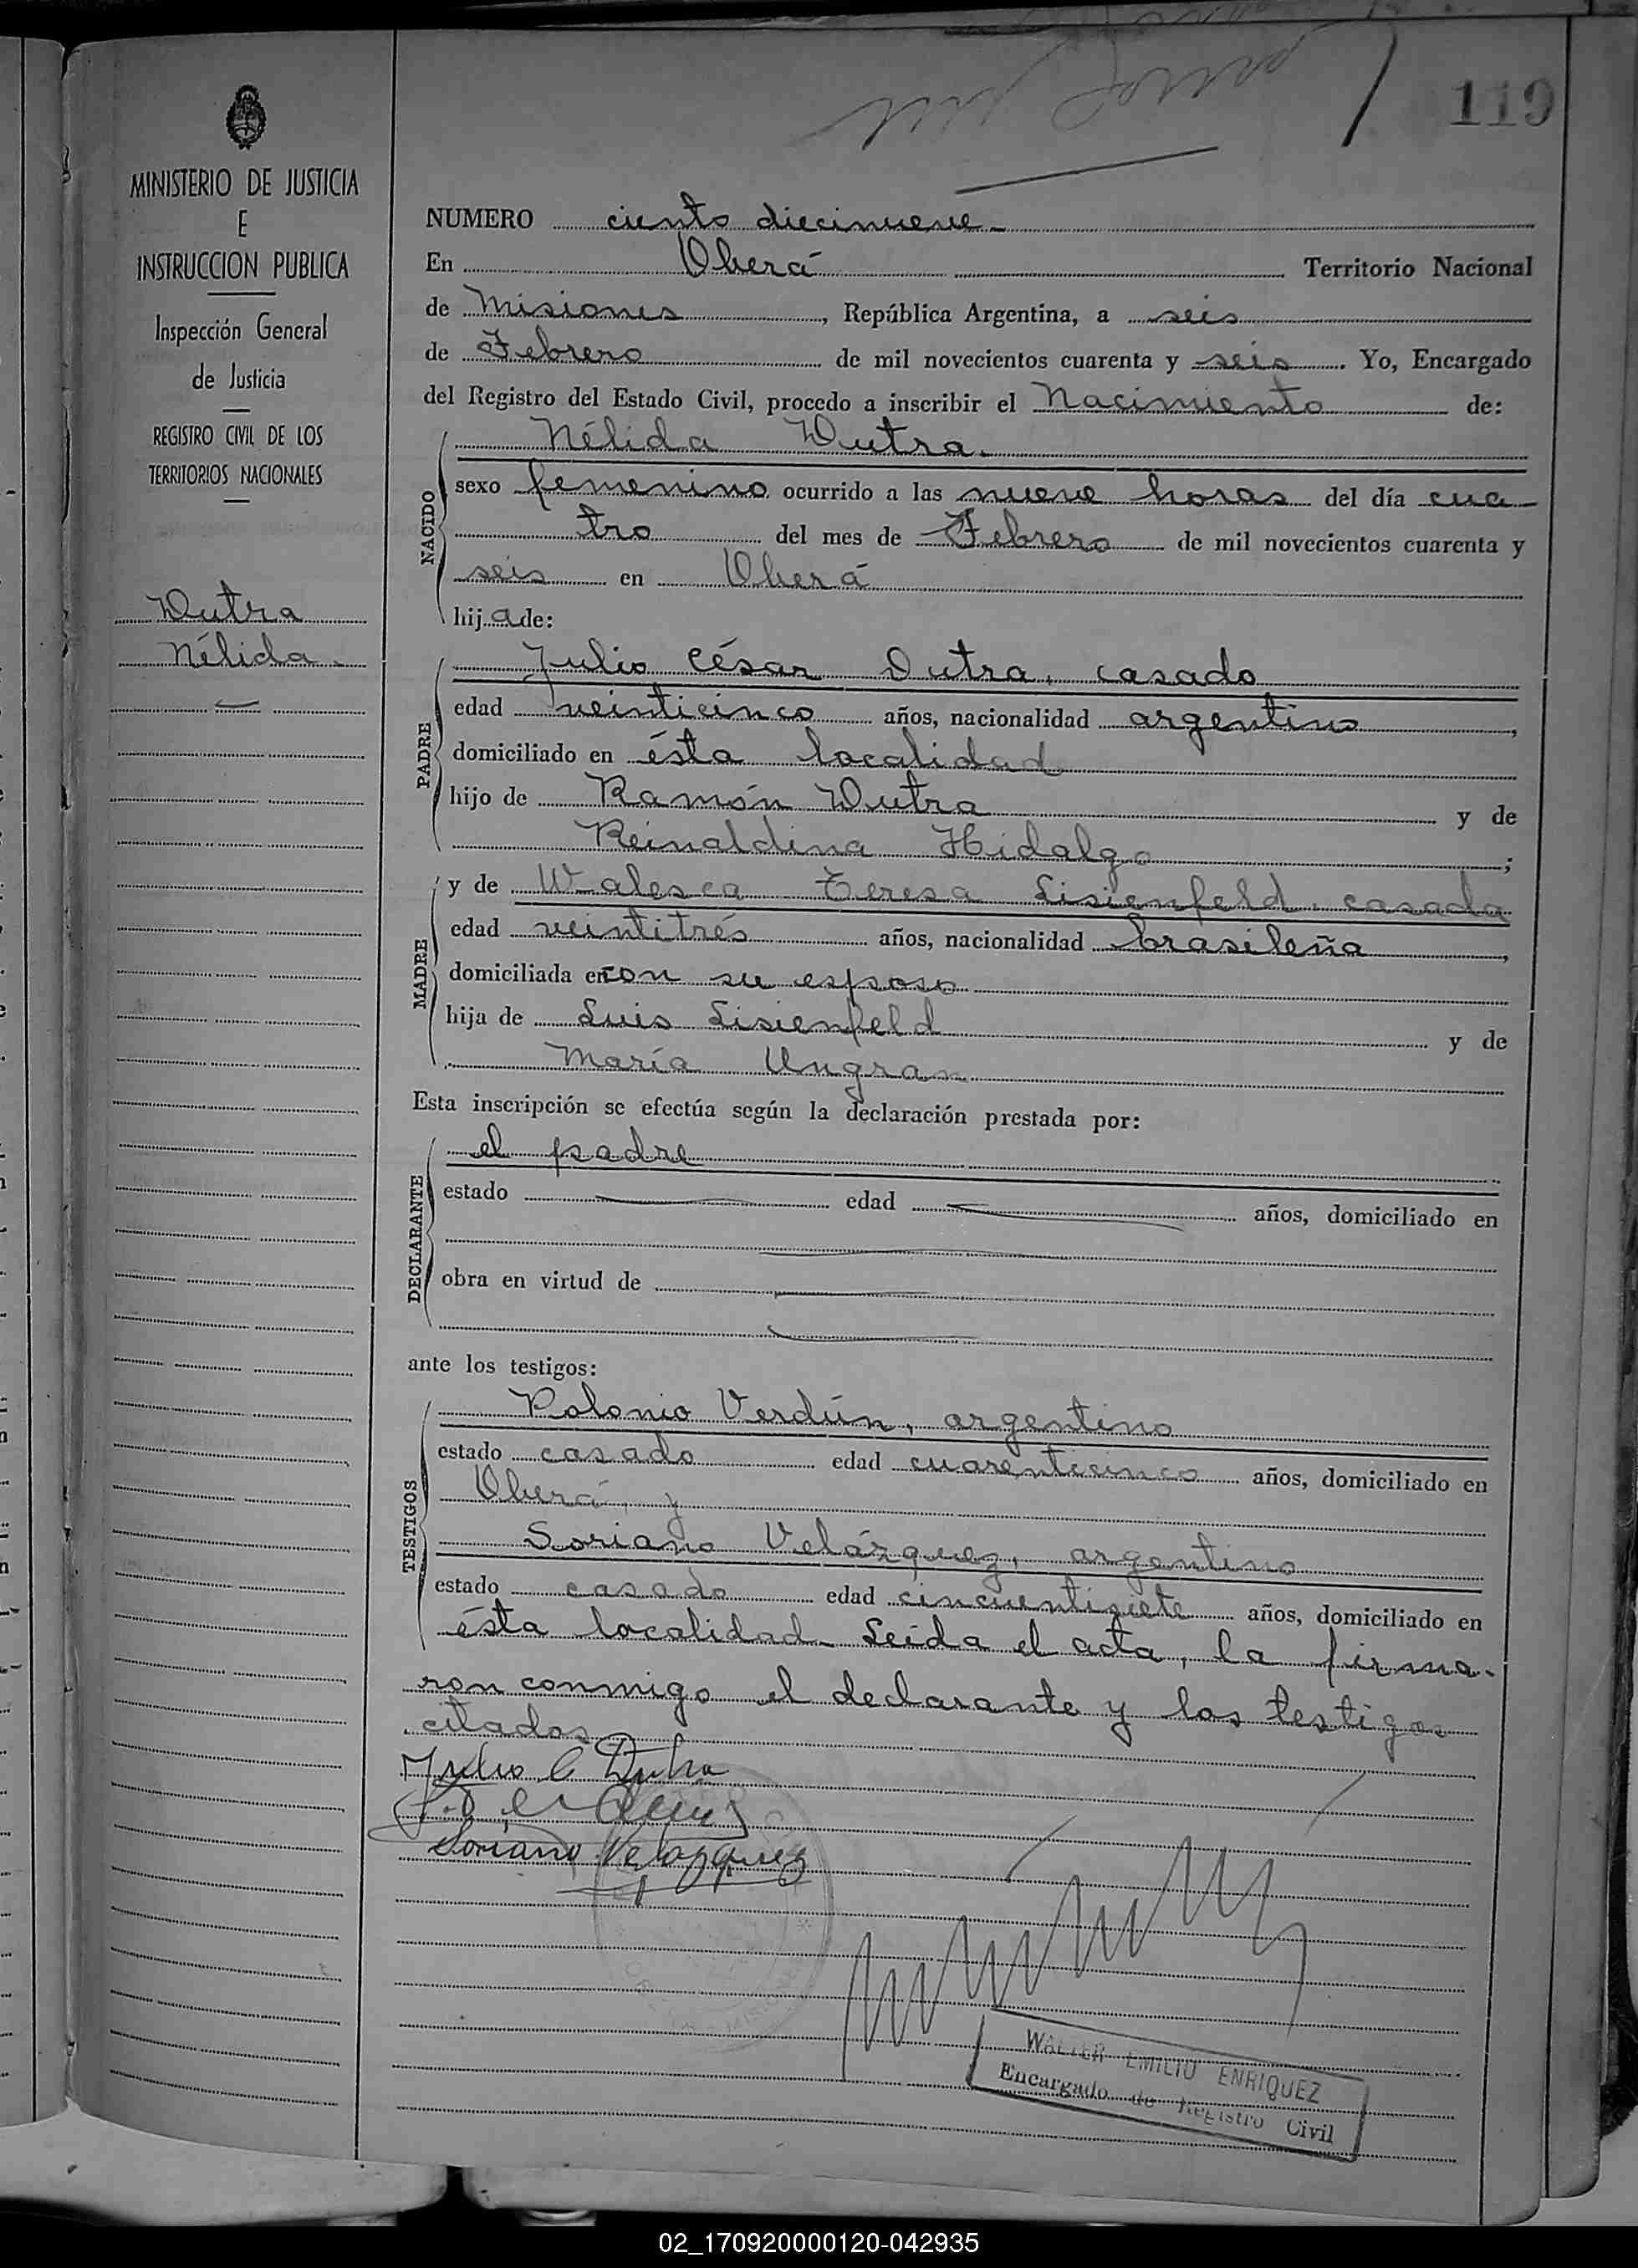 119
MINISTERIO DE JUSTICIA
E
INSTRUCCION PUBLICA
Inspección General
de Justicia
REGISTRO CIVIL DE LOS
TERRITORIOS NACIONALES
Dutra
Nélida.
NUMERO ciento diecinueve.
En Oberá Territorio Nacional
de Misiones, República Argentina, a seis
de Febrero de mil novecientos cuarenta y seis. Yo, Encargado
del Registro del Estado Civil, procedo a inscribir el Nacimiento de:
NACIDO
Nélida Dutra.
sexo femenino ocurrido a las nueve horas del día cua-
tro del mes de Febrero de mil novecientos cuarenta y
seis en Oberá
hija de:
PADRE
Julio César Dutra, casado
edad veinticinco años, nacionalidad argentino,
domiciliado en ésta localidad
hijo de Ramón Dutra y de
Reinaldina Hidalgo;
MADRE
y de Walesca Teresa Lisienfeld, casada
edad veintitrés años, nacionalidad brasileña,
domiciliada en con su esposo
hija de Luis Lisienfeld y de
María Ungran
Esta inscripción se efectúa según la declaración prestada por:
DECLARANTE
el padre
estado edad años, domiciliado en
obra en virtud de
ante los testigos:
TESTIGOS
Polonio Verdún, argentino
estado casado edad cuarenticinco años, domiciliado en
Oberá, y
Soriano Velázquez, argentino
estado casado edad cincuentisiete años, domiciliado en
ésta localidad. Leída el acta, la firma-
ron conmigo el declarante y los testigos
citados
Julio C Dutra
Soriano Velazquez
WALTER EMILIO ENRIQUEZ
Encargado de Registro Civil
02_170920000120-042935